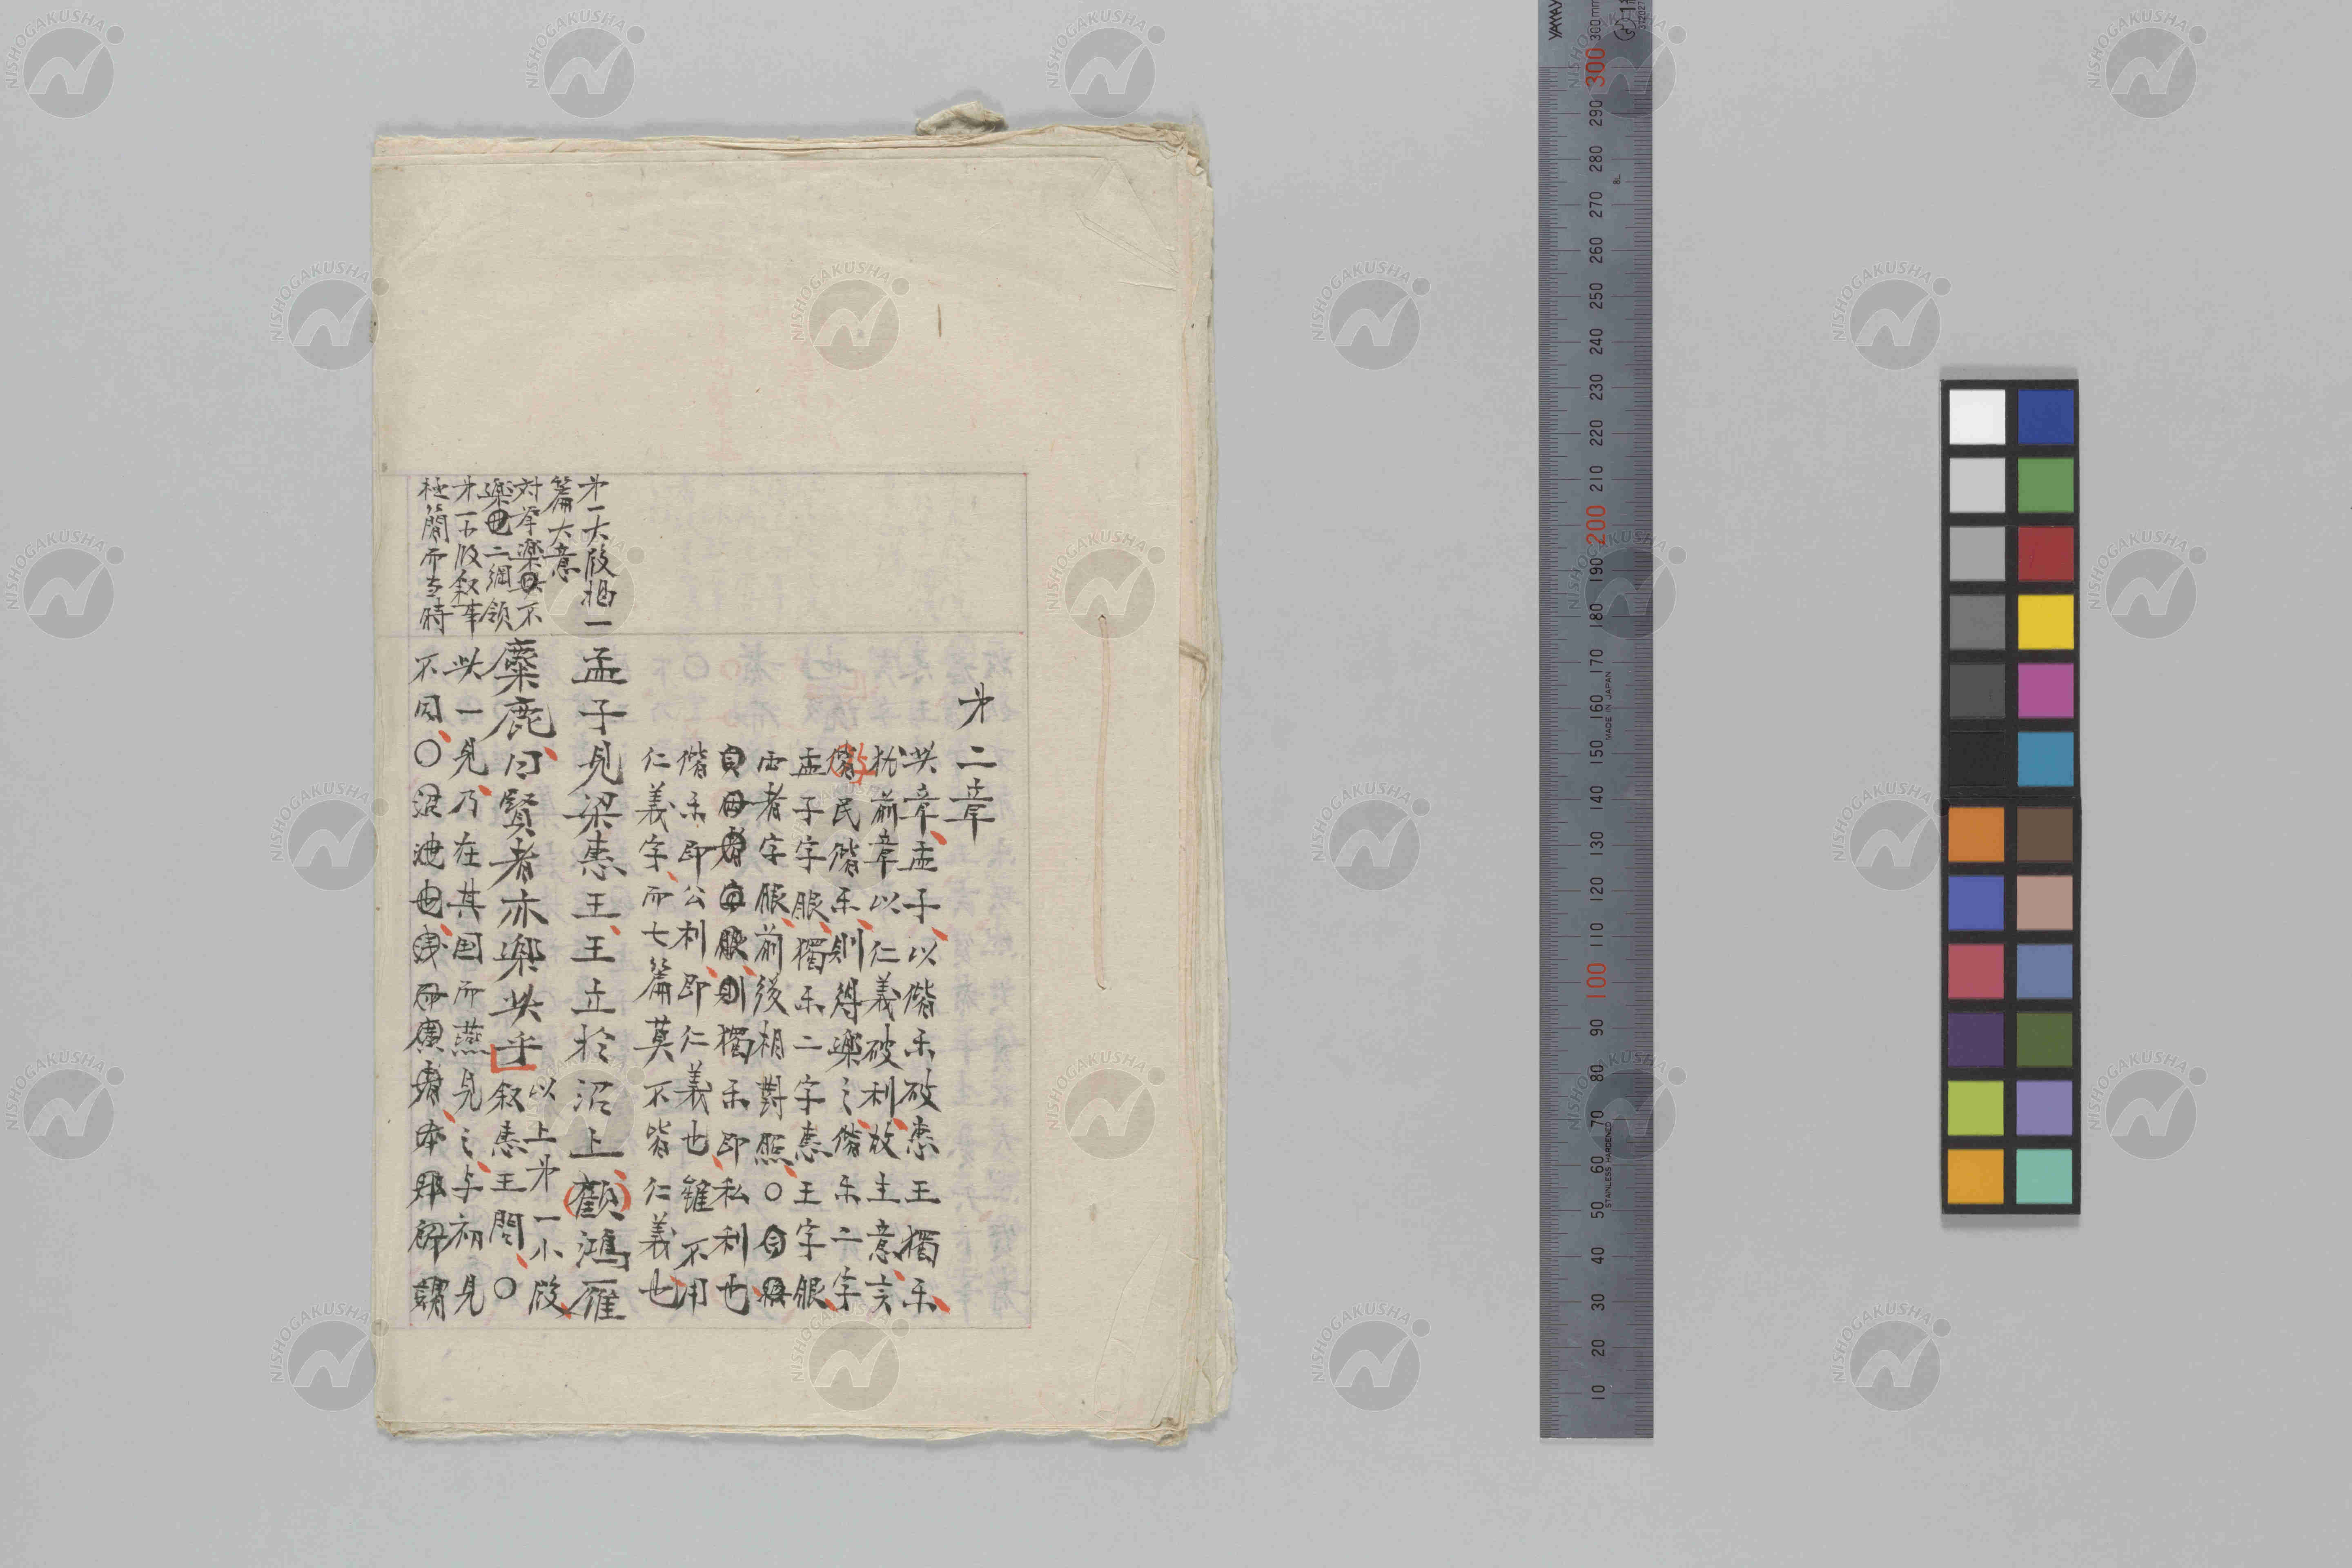 才二章
此章、孟子、以偕乐破恵王獨乐、
犹前章以仁義破利、故主意、言
民偕乐、則得樂之、偕乐二字
孟子字眼、獨乐二字恵王字眼、
両者字眼、前後相對照、○
獨乐即私利也
偕乐即公利、即仁義也、雖不用
仁義字、而七篇莫不皆仁義也
才一大段掲一
篇大意
対挙楽与不
楽 二綱領
才一小段叙事
極簡而当時
孟子見梁恵王、王立於沼上、顧鴻雁
麋鹿、曰賢者亦樂此乎
以上才一小段、
叙恵王問、○
此一見、乃在其国而燕見之、与初見
不同、○沼池也、本邦所謂
NISHOGAKUSHA
300 290 280 270 260 250 240 230 220 210 200 190 180 170 160 150 140 130 120 110 100 90 80 70 60 50 40 30 20 10
MADE IN JAPAN
STAINLESS HARDENED